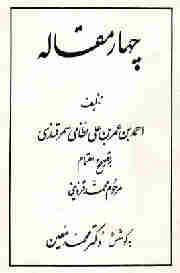 چهار مقاله
تألیف
احمد بن عمر بن علی نظامی سمرقندی
بتصحیح و اهتمام
مرحوم محمد قزوینی
بکوشش دکتر محمد معین